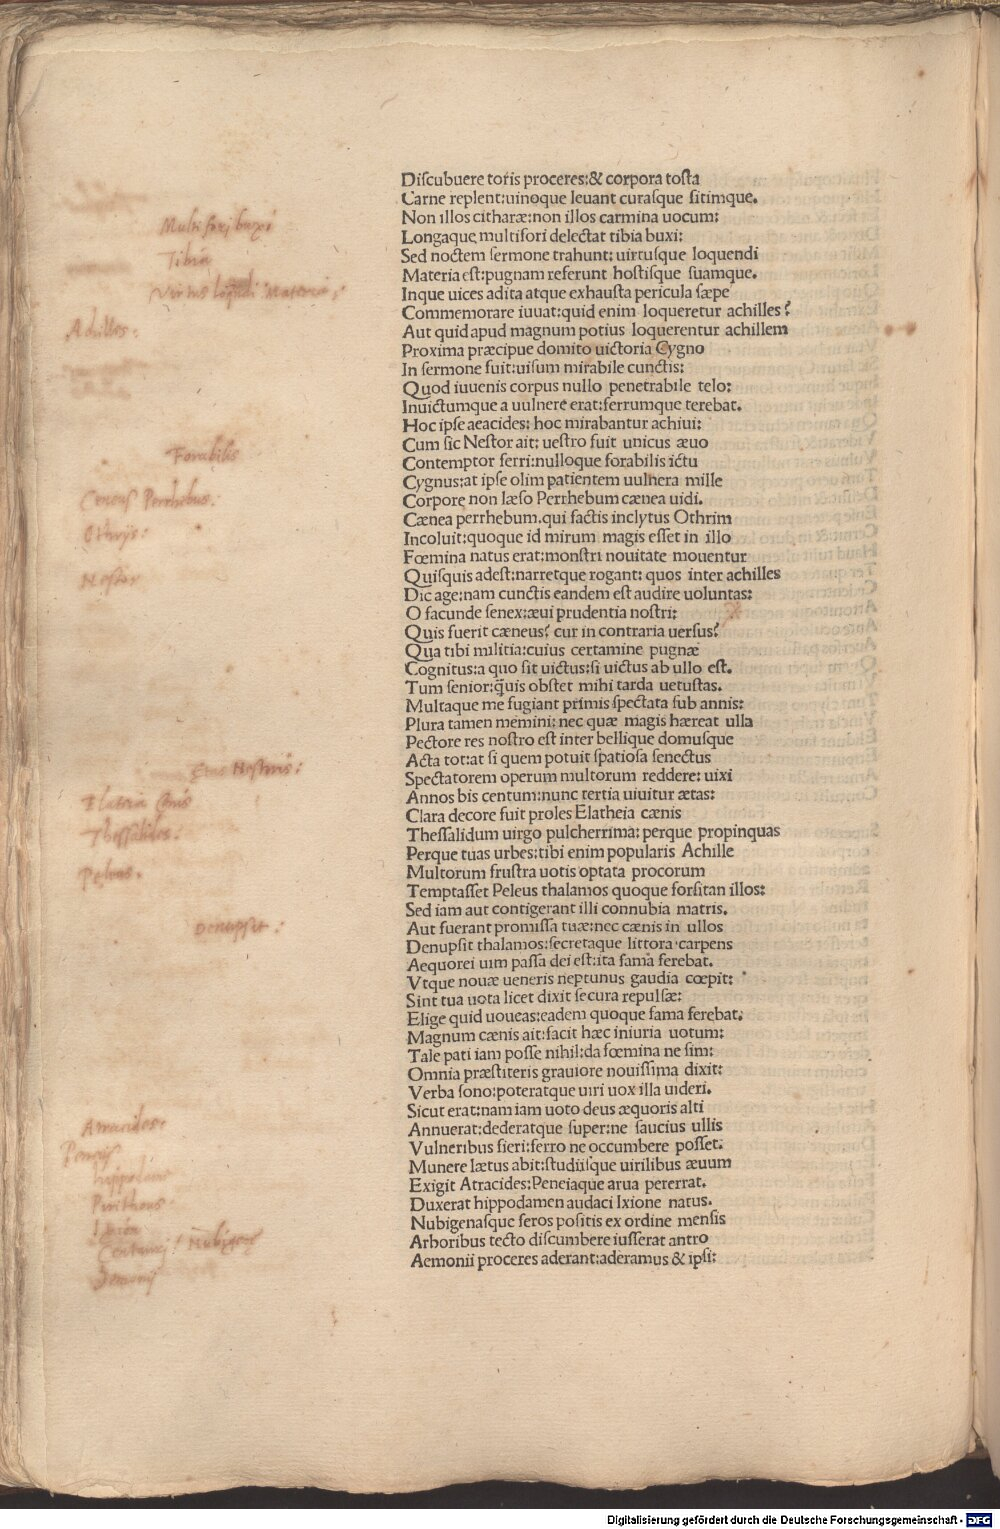 Discubuere toris proceres:& corpora tosta
Carne replent:uinoque leuant curasque sitimque.
Non illos citharæ:non illos carmina uocum:
Longaque multifori delectat tibia buxi:
Sed noctem sermone trahunt: uirtusque loquendi
Materia est:pugnam referunt hostisque suamque.
Inque uices adita atque exhausta pericula sæpe
Commemorare iuuat:quid enim loqueretur achilles?
Aut quid apud magnum potius loquerentur achillem
Proxima præcipue domito uictoria Cygno
In sermone fuit:uisum mirabile cunctis:
Quod iuuenis corpus nullo penetrabile telo:
Inuictumque a uulnere erat:ferrumque terebat.
Hoc ipse aeacides: hoc mirabantur achiui:
Cum sic Nestor ait: uestro fuit unicus æuo
Contemptor ferri:nulloque forabilis ictu
Cygnus:at ipse olim patientem uulnera mille
Corpore non læso Perrhebum cænea uidi.
Cænea perrhebum.qui factis inclytus Othrim
Incoluit:quoque id mirum magis esset in illo
Fœmina natus erat:monstri nouitate mouentur
Quisquis adest:narretque rogant: quos inter achilles
Dic age:nam cunctis eandem est audire uoluntas:
O facunde senex:æui prudentia nostri:
Quis fuerit cæneus? cur in contraria uersus?
Qua tibi militia:cuius certamine pugnæ
Cognitus:a quo sit uictus:si uictus ab ullo est.
Tum senior:q̄uis obstet mihi tarda uetustas.
Multaque me fugiant primis spectata sub annis:
Plura tamen memini: nec quæ magis hæreat ulla
Pectore res nostro est inter bellique domusque
Acta tot:at si quem potuit spatiosa senectus
Spectatorem operum multorum reddere: uixi
Annos bis centum:nunc tertia uiuitur ætas:
Clara decore fuit proles Elatheia cænis
Thessalidum uirgo pulcherrima: perque propinquas
Perque tuas urbes:tibi enim popularis Achille
Multorum frustra uotis optata procorum
Temptasset Peleus thalamos quoque forsitan illos:
Sed iam aut contigerant illi connubia matris.
Aut fuerant promissa tuæ:nec cænis in ullos
Denupsit thalamos:secretaque littora carpens
Aequorei uim passa dei est:ita fama ferebat.
Vtque nouæ ueneris neptunus gaudia cœpit:
Sint tua uota licet dixit secura repulsæ:
Elige quid uoueas:eadem quoque fama ferebat.
Magnum cænis ait:facit hæc iniuria uotum:
Tale pati iam posse nihil:da fœmina ne sim:
Omnia præstiteris grauiore nouissima dixit:
Verba sono:poteratque uiri uox illa uideri.
Sicut erat:nam iam uoto deus æquoris alti
Annuerat:dederatque super:ne saucius ullis
Vulneribus fieri:ferro ne occumbere posset.
Munere lætus abit:studiisque uirilibus æuum
Exigit Atracides:Peneiaque arua pererrat.
Duxerat hippodamen audaci Ixione natus.
Nubigenasque feros positis ex ordine mensis
Arboribus tecto discumbere iusserat antro
Aemonii proceres aderant:aderamus & ipsi:
Multifori buxi
Tibia
Virtus loquēdi Materia:
Achilles:
Forabilis
Ceneus Perrhebus:
Othrys:
Nestor
Etas Nestoris:
Elateia Cænis
Thessalides:
Peleus.
Denupsit:
Atracides:
Peneus
hippodame
Pirithous
Ixion
Centauri: Nubigenæ
Digitalisierung gefördert durch die Deutsche Forschungsgemeinschaft - DFG